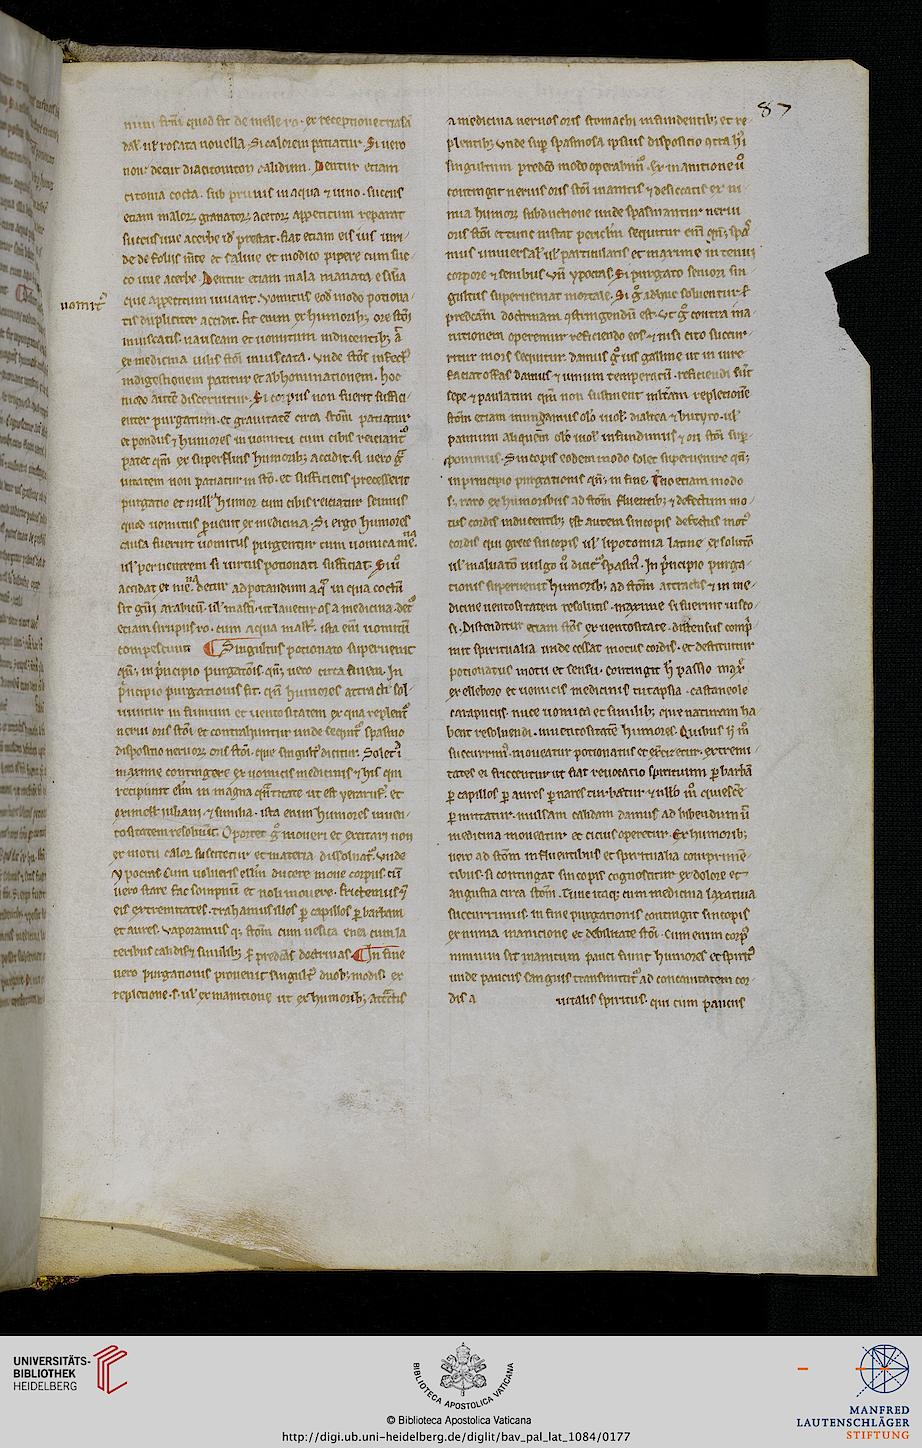 87
dal' ul' rosata nouella. Si calorem patiatur. Si uero
non detur diaciminon calidum. Dentur etiam
citonia cocta. sub prunis in aqua & uino. succus
etiam maloꝝ granatoꝝ acetoꝝ appetitum reparat
succus uue acerbe id prestat. fiat etiam eis ius uiri-
de de foliis mente et saluie et modico pipere cum suc-
co uue acerbe. Dentur etiam mala
que appetitum iuuant. Vomitus eodem modo potiona-
uomitus
tis dupliciter accidit. fit enim ex humoribꝫ ore stomachi
inuiscatis. nauseam et uomitum inducentibꝫ
ex medicina uilis stomachi inuiscata. Vnde stomachus infectus
indigestionem patitur et abhominationem. hoc
modo autem discernitur. Si corpus non fuerit suffici-
enter purgatum. et grauitatem circa stomachum patiatur
et pondus & humores in uomitu cum cibis reiciantur
patet quoniam ex superfluis humoribꝫ accidit. si uero gra-
uitatem non patiatur in stomacho. et sufficiens precesserit
purgatio et nullus humor cum cibis reiciatur scimus
quod uomitus prouenit ex medicina. Si ergo humores
causa fuerint uomitus purgentur cum uomica medicina.
ul' per uentrem si uirtus potionati sufficiat. Si uero
accidat ex medicina. detur ad potandum aqua in qua coctum
sit gummi arabicum. ul' mastix ut lauetur os a medicina. detur
etiam sirupus ro. cum aqua mastix. ista enim uomitum
compescunt. Singultus potionato superuenit
quando in principio purgationis. quando uero circa finem. In
principio purgationis fit. quando humores attracti sol-
uuntur in fumum et uentositatem ex qua replentur
nerui oris stomachi et contrahuntur unde sequitur spasmo
dispositio neruoꝝ oris stomachi. que singultus dicitur. Solet
maxime contingere ex uomicis medicinis & his qui
recipiunt elleborum in magna quantitate ut est yerarufini et
oximell iuliani. & similia. ista enim humores in uen-
tositatem resoluunt. Oportet ergo moueri et excitari non
ex motu calor suscitetur et materia dissoluatur. Vnde
ypocras Cum uolueris elleborum ducere moue corpus. cum
uero stare fac sompnum et noli mouere. fricemus
eis extremitates. trahamus illos per capillos per barbam
et aures. Vaporamus quoque stomachum cum uesica enea cum la-
teribus calidis & similibꝫ secundum predictas doctrinas. In fine
uero purgationis prouenit singultus duobꝫ modis. ex
repletione. s. ul' ex inanitione ut ex humoribꝫ attractis
a medicina neruos oris stomachi infundentibꝫ et re-
plentibꝫ. Vnde superuenit spasmosa ipsius dispositio contra hunc
singultum predicto modo operabimur. Ex inanitione uero
contingit neruis oris stomachi inanitis & desiccatis ex ni-
mia humoꝝ subductione unde spasmantur nerui
oris stomachi et tunc instat periculum sequitur enim quandoque spas-
mus uniuersalis ul' particularis et maxime in tenui
corpore & senibus Vnde ypocras. Si purgato seniori sin-
gultus superueniat mortale. Si ergo adhuc soluentur secundum
predictam doctrinam constringendum est. Vt ergo contra ina-
nitionem operemur reficiendo eos & nisi cito succur-
ritur mors sequitur. damus ergo ius galline ut in iure
faciat offas damus & uinum temperatum. reficiendi sunt
sepe & paulatim quoniam non sustinent multam repletionem
stomachum etiam inungamus oleo uiol. dialtea & butyro. ul'
pannum aliquem oleo uiol. infundimus & ori stomachi sup-
ponimus. Sincopis eodem modo solet superuenire quandoque
in principio purgationis quandoque in fine. Tercio etiam modo
s. raro ex humoribus ad stomachum fluentibꝫ & defectum mo-
tus cordis inducentibꝫ est autem sincopis defectus motus
cordis qui grece sincopis ul' lipotomia latine exsolutio
ul' maluatio uulgo uero dicitur spasmus. In principio purga-
tionis superuenit humoribꝫ ad stomachum attractis & in me-
dicine uentositatem resolutis. maxime si fuerint uisco-
si. Distenditur etiam stomachus ex uentositate. distensus compri-
mit spiritualia unde cessat motus cordis. et destituitur
potionatus motu et sensu. contingit hec passio maxime
ex elleboro et uomicis medicinis ut tapsia. castaneole
catapucis. nuce uomica et similibꝫ. que naturam ha-
bent resoluendi. in uentositatem humores. Quibus hoc modo
succurrimus. moueatur potionatus et excitetur. extremi-
tates ei fricentur ut fiat reuocatio spirituum per barbam
per capillos per aures per nares turbatur et nullo modo quiescere
permittatur. mulsam calidam damus ad bibendum ut
medicina moueatur et citius operetur. Ex humoribꝫ
uero ad stomachum influentibus et spiritualia comprimen-
tibus. si contingat sincopis cognoscitur ex dolore et
angustia circa stomachum. Tunc itaque cum medicina laxatiua
succurrimus. in fine purgationis contingit sincopis
ex nimia inanitione et debilitate stomachi. Cum enim corpus
nimium sit inanitum pauci sunt humores et spiritus
unde paucus sanguis transmittitur ad concauitatem cor-
dis a uitalis spiritus. qui cum paucus
UNIVERSITÄTS-
BIBLIOTHEK
HEIDELBERG
BIBLIOTECA APOSTOLICA VATICANA
© Biblioteca Apostolica Vaticana
http://digi.ub.uni-heidelberg.de/diglit/bav_pal_lat_1084/0177
MANFRED
LAUTENSCHLÄGER
STIFTUNG